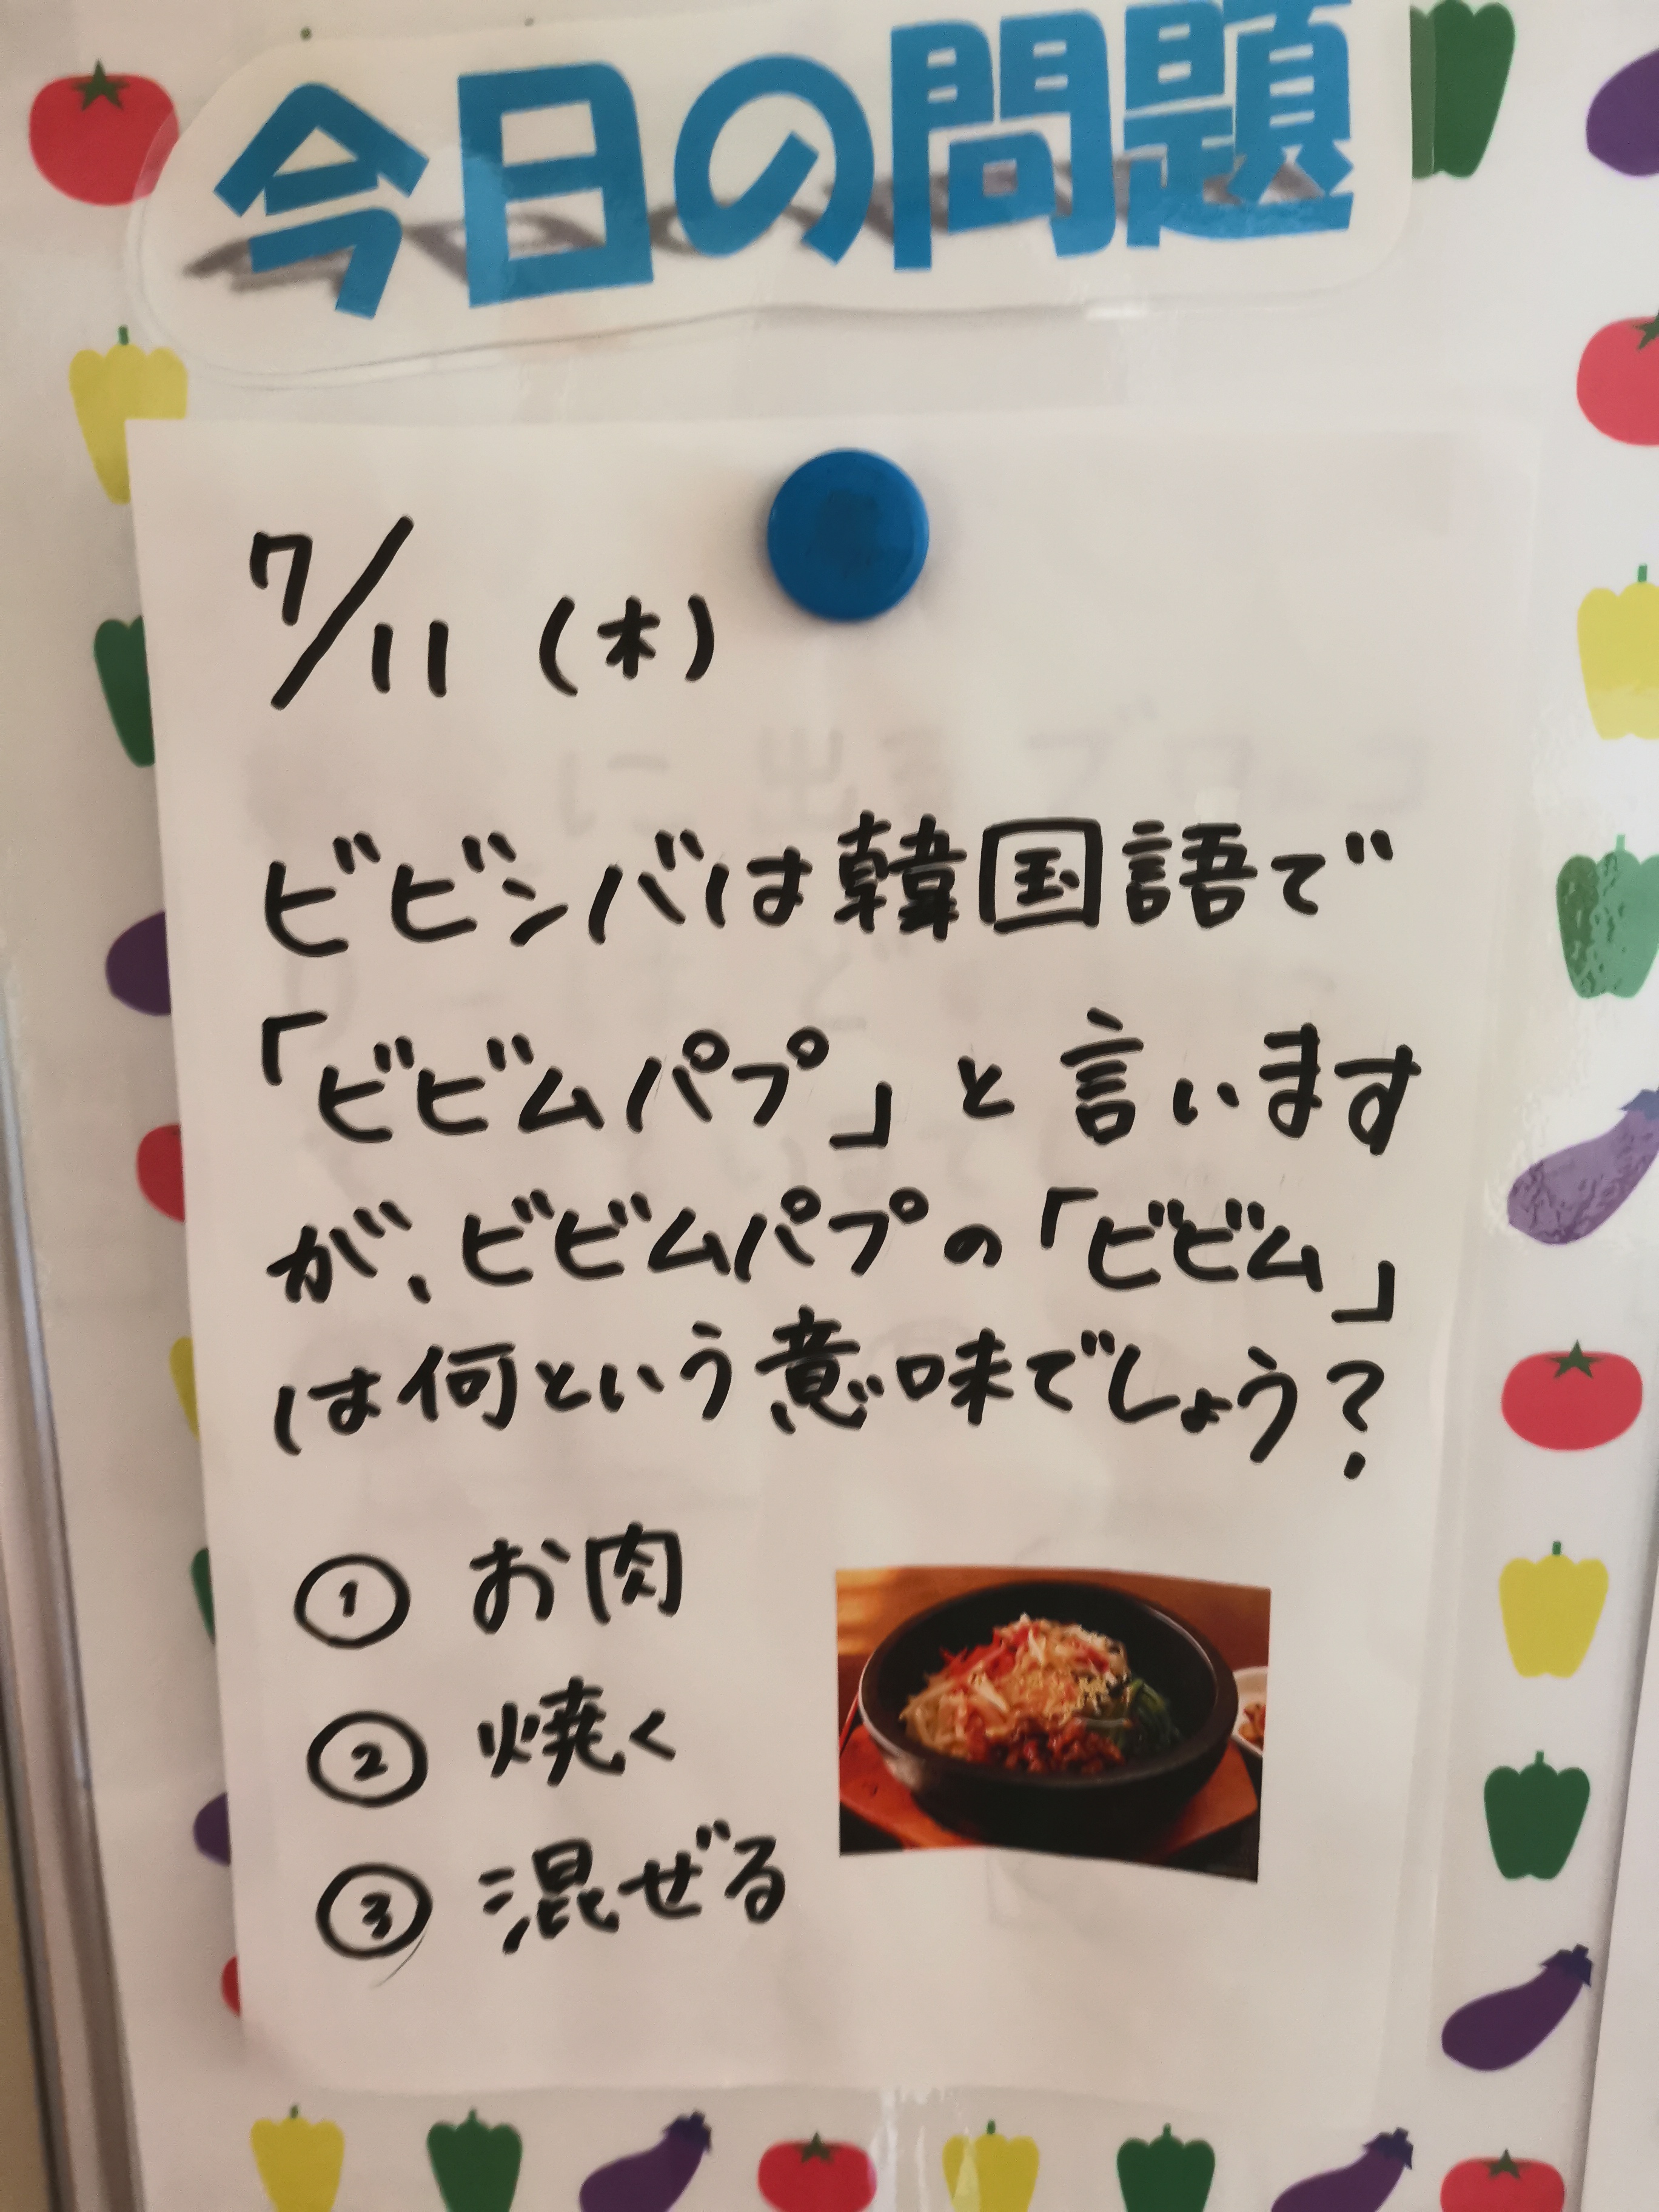 今日の問題
7/11 (木)
ビビンバは韓国語で
「ビビムパプ」と言います
が、ビビムパプの「ビビム」
は何という意味でしょう?
① お肉
② 焼く
③ 混ぜる